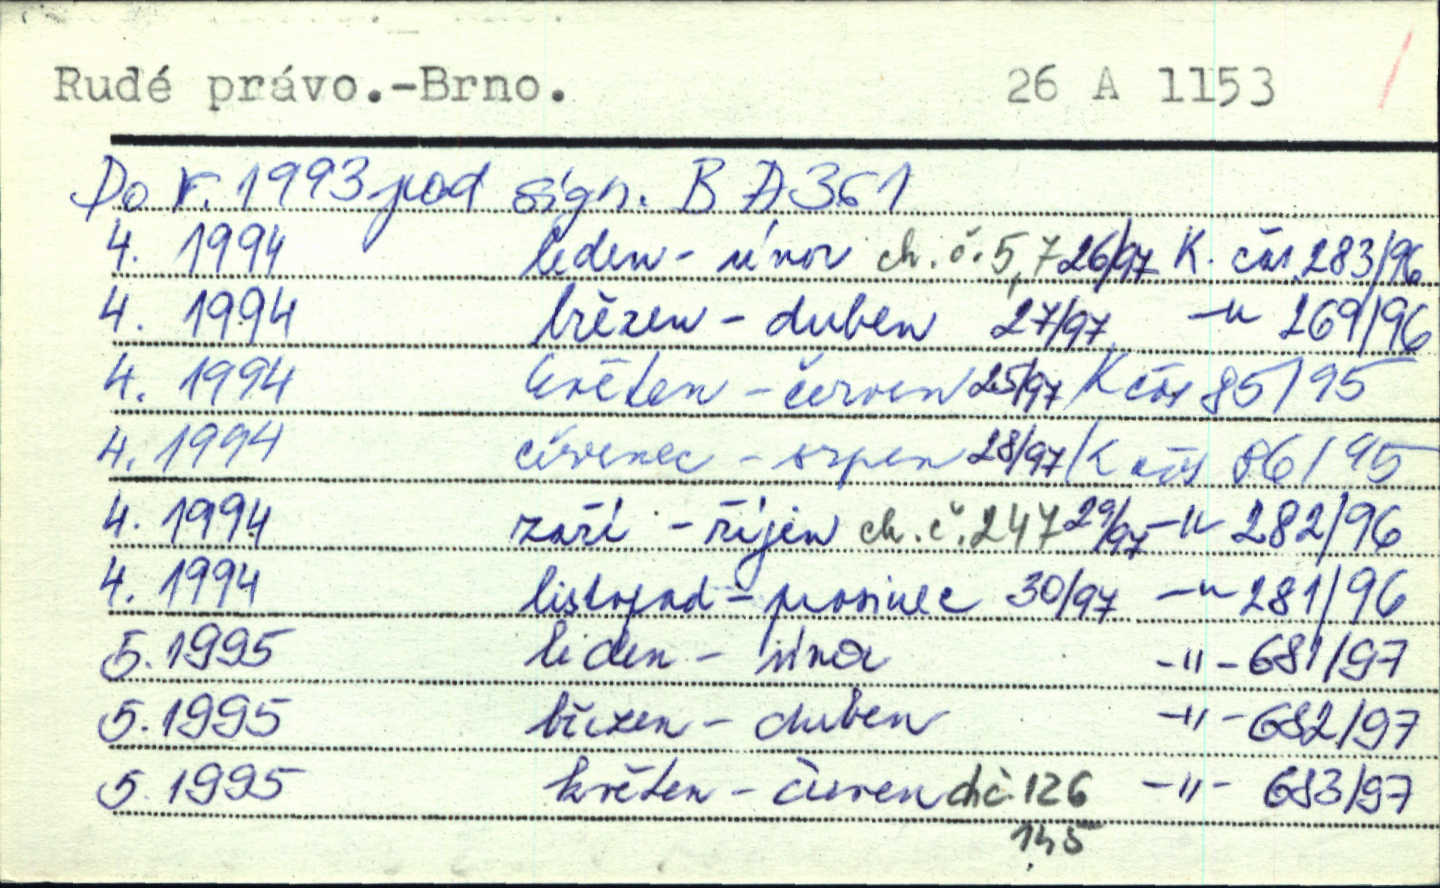 Rudé právo.-Brno. 26 A 1153
Do r. 1993 pod sign. B D 361
4. 1994 leden - únor ch.č. 5,7 26/97 K. čas. 283/96
4. 1994 březen - duben 27/97 -"- 269/96
4. 1994 květen - červen 25/97 K čas 85/95
4. 1994 červenec - srpen 28/97 K čas 86/95
4. 1994 září - říjen ch.č. 247 29/97 -"- 282/96
4. 1994 listopad - prosinec 30/97 -"- 281/96
5. 1995 leden - únor -"- 681/97
5. 1995 březen - duben -"- 682/97
5. 1995 květen - červen ch.č. 126 -"- 683/97
145